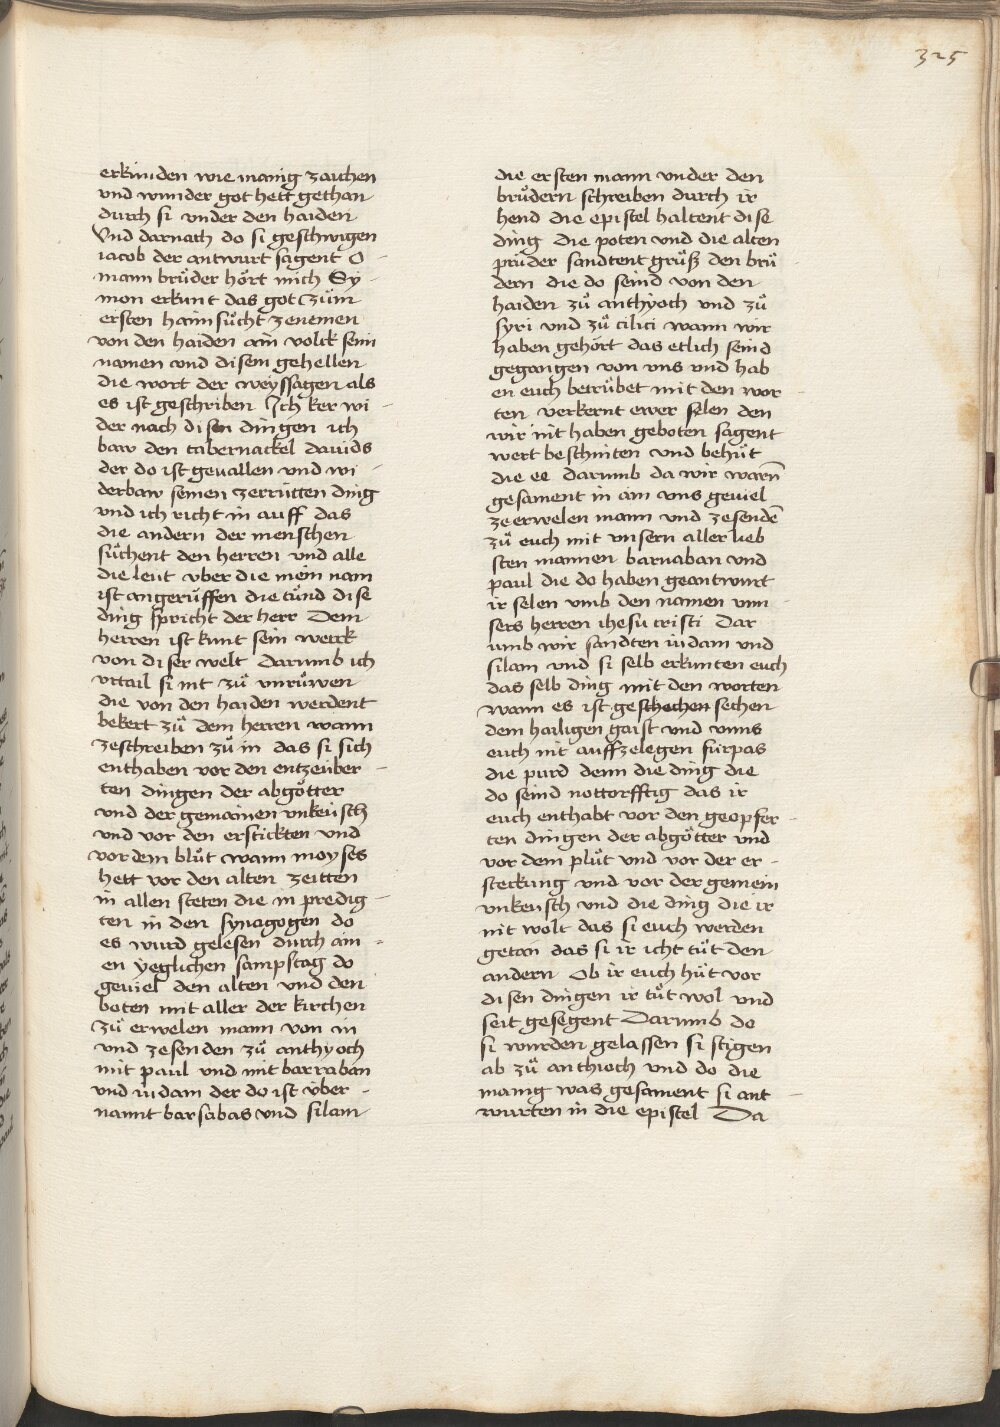 325
erkunden wie manig zaichen
vnd wunder got hett gethan
durch si vnder den haiden
Vnd darnach do si geschwigen
iacob der antwurt sagent O
mann brůder hőrt mich Sy-
mon erkunt das got zům
ersten haimsůcht zenemen
von den haiden ain volck seim
namen vnd disem gehellen
die wort der weyssagen als
es ist geschriben Ich ker wi-
der nach disen dingen ich
baw den tabernackel dauids
der do ist geuallen vnd wi-
derbaw seinen zerrütten ding
vnd ich richt in auff das
die andern der menschen
sůchent den herren vnd alle
die leut vber die mein nam
ist angerůffen die tůnd dise
ding spricht der herr Dem
herren ist kunt sein werck
von diser welt Darumb ich
vrtail si nit zů vnrůwen
die von den haiden werdent
bekert zů dem herren wann
zeschreiben zů in das si sich
enthaben vor den entzeüber-
ten dingen der abgőtter
vnd der gemainen vnkeüsch
vnd vor den erstickten vnd
vor dem blůt wann moyses
hett vor den alten zeitten
in allen steten die in predig-
ten in den synagogen do
es wurd gelesen durch ain-
en yeglichen sampstag do
geuiel den alten vnd den
boten mit aller der kirchen
zů erwelen mann von in
vnd zesenden zů anthyoch
mit paul vnd mit barraban
vnd iudam der do ist über-
nannt barsabas vnd silam
die ersten mann vnder den
brůdern schreiben durch ir
hend die epistel haltent dise
ding die poten vnd die alten
prüder sandtent grůß den brü-
dern die do seind von den
haiden zů anthyoch vnd zů
syri vnd zů cilici wann wir
haben gehőrt das etlich seind
gegangen von vns vnd hab
en euch betrübet mit den wor-
ten verkernt ewer selen den
wir nit haben geboten sagent
wert beschniten vnd behůt
die ee darumb da wir warn̄
gesament in ain vns geuiel
ze erwelen mann vnd zesendē
zů euch mit vnsern aller lieb
sten mannen barnaban vnd
paul die do haben geantwurt
ir selen vmb den namen vnn-
sers herren ihesu cristi Dar
umb wir sandten iudam vnd
silam vnd si selb erkunten euch
das selb ding mit den worten
wann es ist geschechen sechen
dem hailigen gaist vnd vnns
euch nit auffzelegen fürpas
die purd denn die ding die
do seind nottorfftig das ir
euch enthabt vor den geopfer-
ten dingen der abgőtter vnd
vor dem plůt vnd vor der er-
steckung vnd vor der gemein
vnkeusch vnd die ding die ir
nit wolt das si euch werden
getan das si ir icht tůt den
andern Ob ir euch hüt vor
disen dingen ir tůt wol vnd
seit gesegent Darumb do
si wurden gelassen si stigen
ab zů anthioch vnd do die
manig was gesament si ant-
wurten in die epistel Da